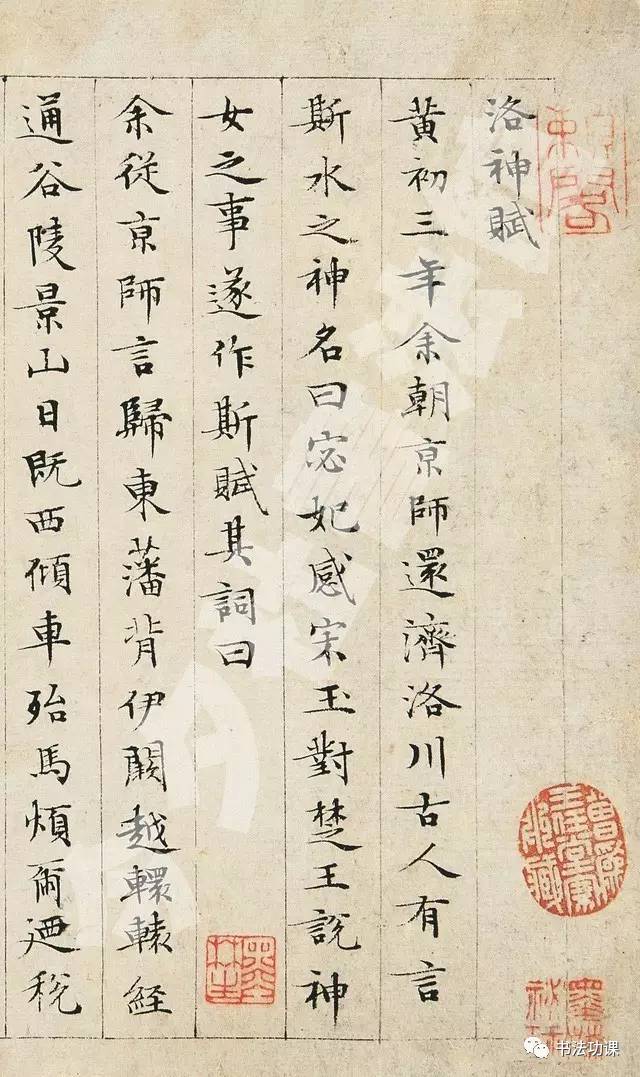 洛神賦
黃初三年余朝京師還濟洛川古人有言
斯水之神名曰宓妃感宋玉對楚王說神
女之事遂作斯賦其詞曰
余從京師言歸東藩背伊闕越轘轅經
通谷陵景山日既西傾車殆馬煩爾迺稅
书法功课